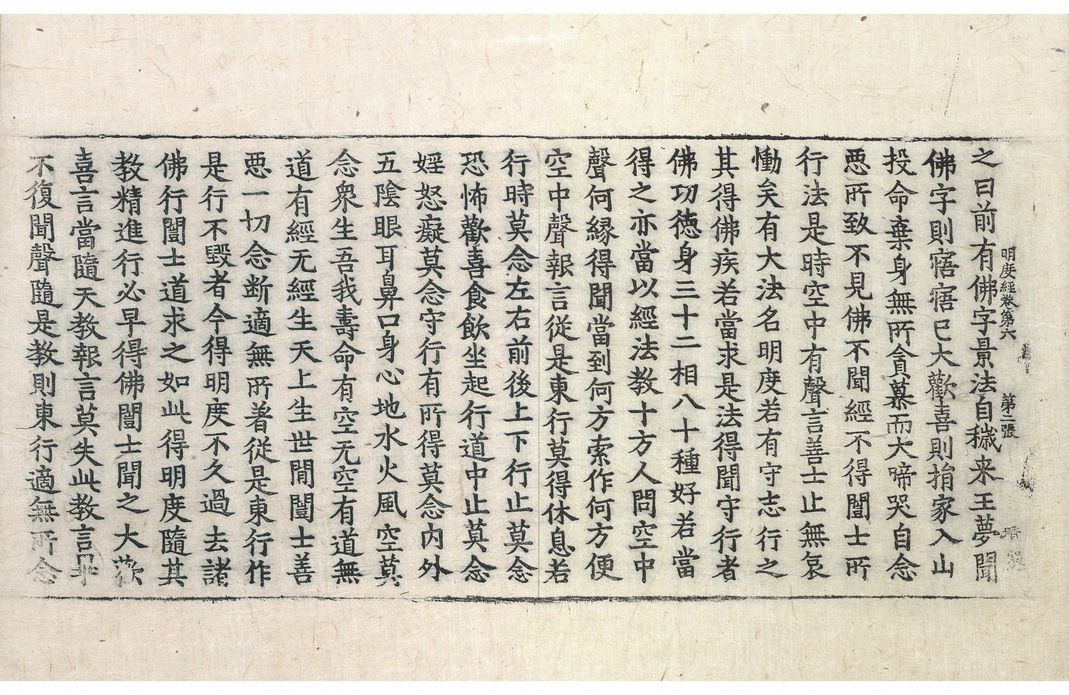 明度經卷第六 第二張
之曰前有佛字景法自穢来王夢聞
佛字則寤寤已大歡喜則捐家入山
投命棄身無所貪慕而大啼哭自念
惡所致不見佛不聞經不得闓士所
行法是時空中有聲言善士止無哀
慟矣有大法名明度若有守志行之
其得佛疾若當求是法得聞守行者
佛功德身三十二相八十種好若當
得之亦當以經法教十方人問空中
聲何緣得聞當到何方索作何方便
空中聲報言從是東行莫得休息若
行時莫念左右前後上下行止莫念
恐怖歡喜食飲坐起行道中止莫念
婬怒癡莫念守行有所得莫念內外
五陰眼耳鼻口身心地水火風空莫
念眾生吾我壽命有空无空有道無
道有經无經生天上生世間闓士善
惡一切念断適無所著從是東行作
是行不毀者今得明度不久過去諸
佛行闓士道求之如此得明度隨其
教精進行必早得佛闓士聞之大歡
喜言當隨天教報言莫失此教言畢
不復聞聲隨是教則東行適無所念